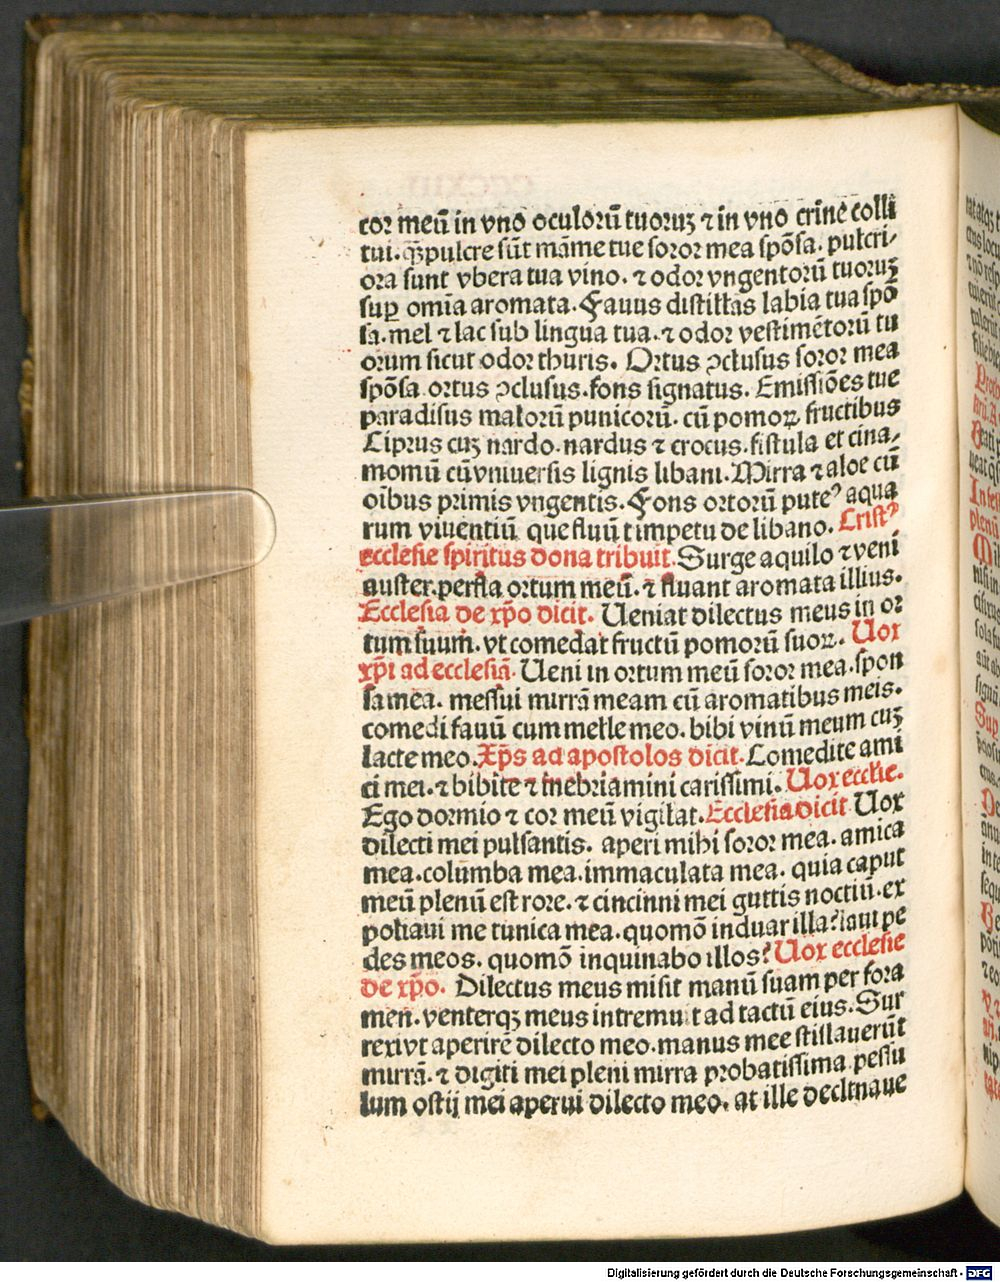 cor meū in vno oculorū tuoruꝫ ⁊ in vno crīne colli
tui. ꝙ̄ pulcre sūt māme tue soror mea spōsa. pulcri⸗
ora sunt vbera tua vino. ⁊ odor vngentorū tuoruꝫ
suꝑ omīa aromata. Fauus distillās labia tua spō
sa. mel ⁊ lac sub lingua tua. ⁊ odor vestimētorū tu
orum sicut odor thuris. Ortus ꝯclusus soror mea
spōsa ortus ꝯclusus. fons signatus. Emissiōes tue
paradisus malorū punicorū. cū pomoꝝ fructibus
Ciprus cuꝫ nardo. nardus ⁊ crocus. fistula et cina⸗
momū cū vniuersis lignis libani. Mirra ⁊ aloe cū
oībus primis vngentis. Fons ortorū puteꝰ aqua
rum viuentiū que fluūt impetu de libano. Cristꝰ
ecclesie spiritus dona tribuit. Surge aquilo ⁊ veni
auster. perfla ortum meū. ⁊ fluant aromata illius.
Ecclesia de xp̄o dicit. Ueniat dilectus meus in or
tum suum. vt comedat fructū pomorū suoꝝ. Uox
xp̄i ad ecclesiā. Ueni in ortum meū soror mea. spon
sa mea. messui mirrā meam cū aromatibus meis.
comedi fauū cum melle meo. bibi vinū meum cuꝫ
lacte meo. Xp̄s ad apostolos dicit. Comedite ami
ci mei. ⁊ bibite ⁊ inebriamini carissimi. Uox eccl̄ie.
Ego dormio ⁊ cor meū vigilat. Ecclesia dicit Uox
dilecti mei pulsantis. aperi mihi soror mea. amica
mea. columba mea. immaculata mea. quia caput
meū plenū est rore. ⁊ cincinni mei guttis noctiū. ex
poliaui me tunica mea. quomō induar illa? laui pe
des meos. quomō inquinabo illos? Uox ecclesie
de xp̄o. Dilectus meus misit manū suam per fora
men. venterqꝫ meus intremuit ad tactū eius. Sur
rexi vt aperirē dilecto meo. manus mee stillauerūt
mirrā. ⁊ digiti mei pleni mirra probatissima pessu
lum ostij mei aperui dilecto meo. at ille declinaue
Digitalisierung gefördert durch die Deutsche Forschungsgemeinschaft - DFG